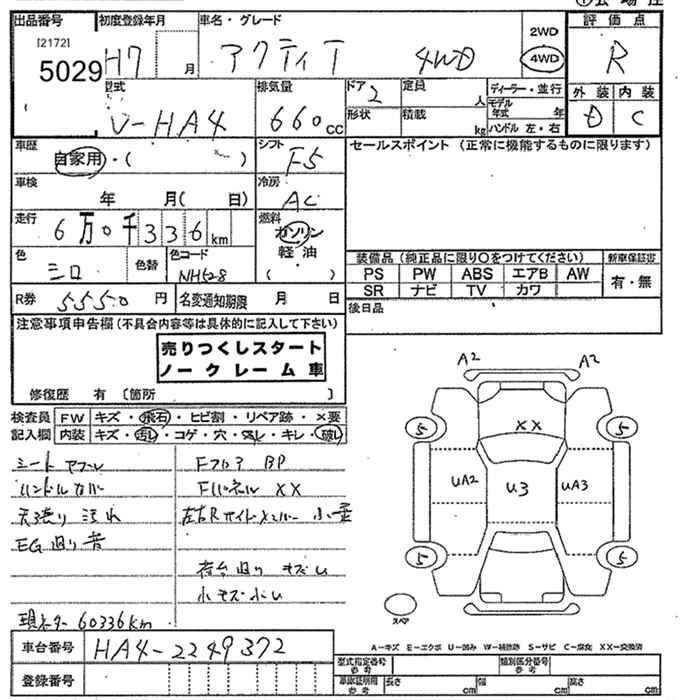 ①会場
出品番号 初度登録年月 車名・グレード 評価点
[2172] 5029 H7 月 アクティ T 4WD 2WD 4WD R
型式 排気量 ドア 定員 ディーラー・並行 外装 内装
V-HA4 660cc 2 人 モデル年式 年 D C
形状 積載 kg ハンドル 左・右
車歴 シフト セールスポイント (正常に機能するものに限ります)
自家用・( ) F5
車検 冷房
年 月( 日) AC
走行 燃料
6万0千336km ガソリン
軽油
( )
色 色替 色コード 装備品 (純正品に限り〇をつけてください) 新車保証書
シロ NH528 PS PW ABS エアB AW 有・無
SR ナビ TV カワ
R券 5550円 名変通知期限 月 日 後日品
注意事項申告欄(不具合内容等は具体的に記入して下さい)
売りつくしスタート
ノークレーム車
修復歴 有 〔箇所 〕
検査員 FW キズ・飛石・ヒビ割・リペア跡・×要
記入欄 内装 キズ・汚れ・コゲ・穴・スレ・キレ・破れ
A2 A2
5 XX 5
UA2 U3 UA3
5 5
スペア
シートヤブレ Fフロア BP
ハンドル Fパネル XX
天張り 汚れ 左右Rサイドメンバー 小歪
EG廻り 音
荷台廻り キズ
小キズ
現メーター 60336km
車台番号 HA4-2249372
A-キズ E-エクボ U-凹み W-補修跡 S-サビ C-腐食 XX-交換済
登録番号
型式指定番号 参考 類別区分番号 参考
車庫証明用 参考 長さ cm 幅 cm 高さ cm